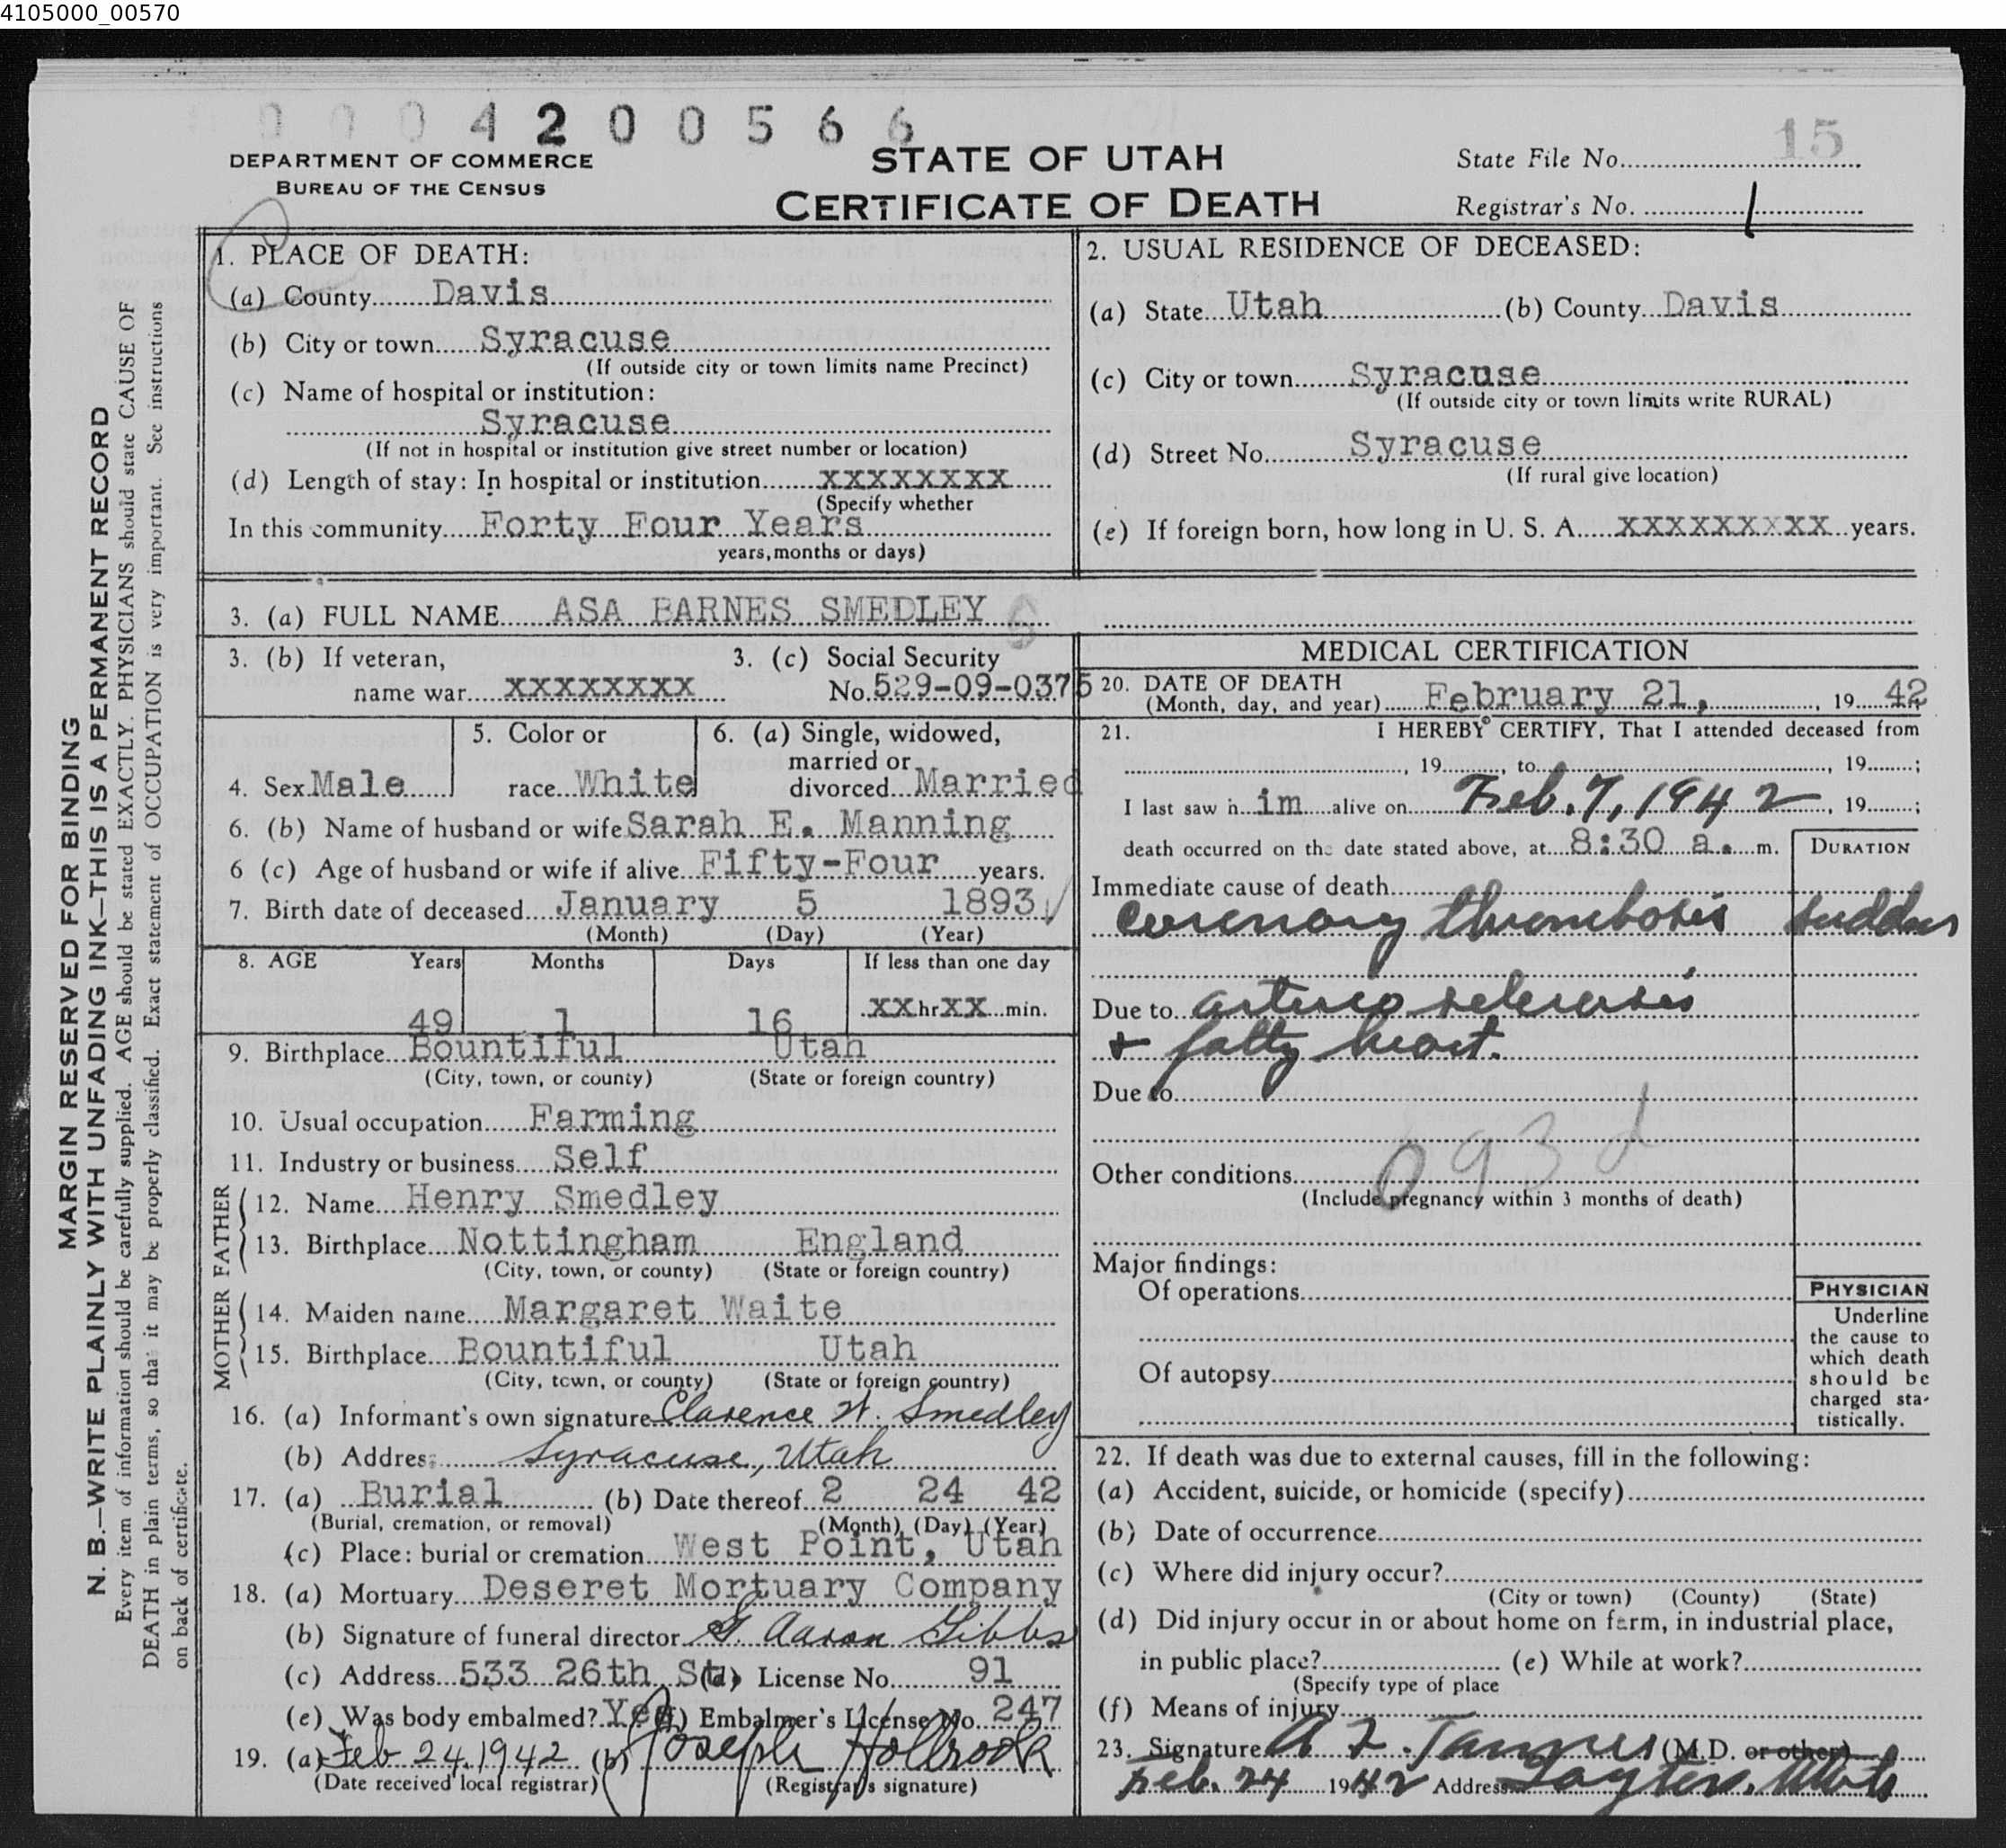 4105000_00570
0004200566
15
DEPARTMENT OF COMMERCE
BUREAU OF THE CENSUS
STATE OF UTAH
CERTIFICATE OF DEATH
State File No.
Registrar's No. 1
MARGIN RESERVED FOR BINDING
N. B.—WRITE PLAINLY WITH UNFADING INK—THIS IS A PERMANENT RECORD
Every item of information should be carefully supplied. AGE should be stated EXACTLY. PHYSICIANS should state CAUSE OF
DEATH in plain terms, so that it may be properly classified. Exact statement of OCCUPATION is very important. See instructions
on back of certificate.
1. PLACE OF DEATH:
(a) County Davis
(b) City or town Syracuse
(If outside city or town limits name Precinct)
(c) Name of hospital or institution:
Syracuse
(If not in hospital or institution give street number or location)
(d) Length of stay: In hospital or institution XXXXXXXX
(Specify whether
In this community Forty Four Years
years, months or days)
2. USUAL RESIDENCE OF DECEASED:
(a) State Utah (b) County Davis
(c) City or town Syracuse
(If outside city or town limits write RURAL)
(d) Street No. Syracuse
(If rural give location)
(e) If foreign born, how long in U. S. A. XXXXXXXXX years.
3. (a) FULL NAME ASA BARNES SMEDLEY S
3. (b) If veteran,
name war XXXXXXXX
3. (c) Social Security
No. 529-09-0375
4. Sex Male
5. Color or
race White
6. (a) Single, widowed,
married or
divorced Married
6. (b) Name of husband or wife Sarah E. Manning
6 (c) Age of husband or wife if alive Fifty-Four years.
7. Birth date of deceased January 5 1893
(Month) (Day) (Year)
8. AGE Years Months Days If less than one day
49 1 16 XX hr XX min.
9. Birthplace Bountiful Utah
(City, town, or county) (State or foreign country)
10. Usual occupation Farming
11. Industry or business Self
FATHER
12. Name Henry Smedley
13. Birthplace Nottingham England
(City, town, or county) (State or foreign country)
MOTHER
14. Maiden name Margaret Waite
15. Birthplace Bountiful Utah
(City, town, or county) (State or foreign country)
16. (a) Informant's own signature Clarence W. Smedley
(b) Address Syracuse, Utah
17. (a) Burial (b) Date thereof 2 24 42
(Burial, cremation, or removal) (Month) (Day) (Year)
(c) Place: burial or cremation West Point, Utah
18. (a) Mortuary Deseret Mortuary Company
(b) Signature of funeral director G. Aaron Gibbs
(c) Address 533 26th St. (d) License No. 91
(e) Was body embalmed? Yes (f) Embalmer's License No. 247
19. (a) Feb. 24, 1942 (b) Joseph Holbrook
(Date received local registrar) (Registrar's signature)
MEDICAL CERTIFICATION
20. DATE OF DEATH
(Month, day, and year) February 21, , 19 42
21. I HEREBY CERTIFY, That I attended deceased from
, 19 , to , 19 ;
I last saw h im alive on Feb. 7, 1942 , 19 ;
death occurred on the date stated above, at 8:30 a. m.
DURATION
Immediate cause of death
coronary thrombosis sudden
Due to arterio sclerosis
+ fatty heart.
Due to
093d
Other conditions
(Include pregnancy within 3 months of death)
Major findings:
Of operations
Of autopsy
PHYSICIAN
Underline
the cause to
which death
should be
charged sta-
tistically.
22. If death was due to external causes, fill in the following:
(a) Accident, suicide, or homicide (specify)
(b) Date of occurrence
(c) Where did injury occur?
(City or town) (County) (State)
(d) Did injury occur in or about home on farm, in industrial place,
in public place? (e) While at work?
(Specify type of place
(f) Means of injury
23. Signature A Z. Tanner (M.D. or other)
Feb. 24 1942 Address Layton, Utah